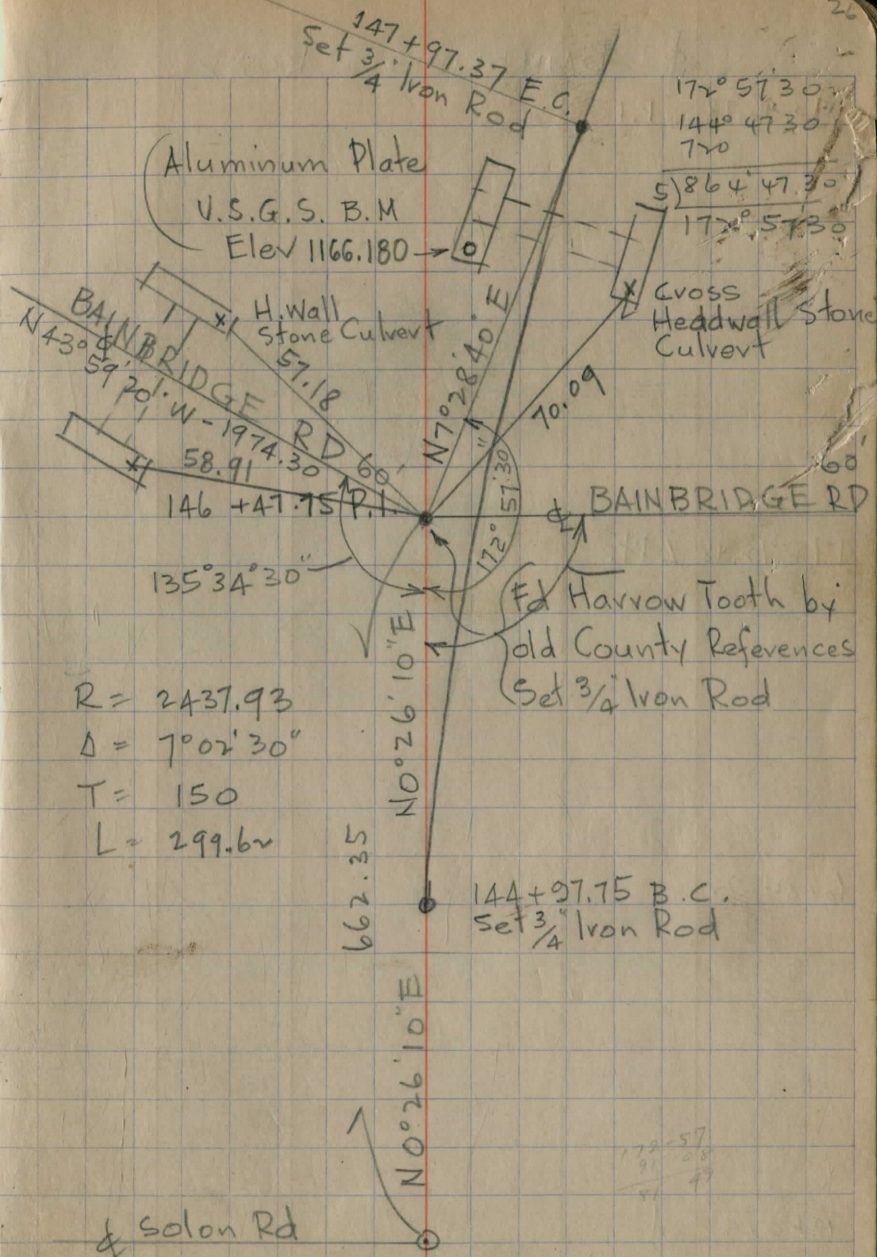 26
147+97.37 E.C.
Set 3/4" Iron Rod
172° 57' 30
144° 47 30
720
5)864' 47.30"
172° 57' 30"
Aluminum Plate
U.S.G.S. B.M
Elev 1166.180
Cross
Headwall Stone
Culvert
H.Wall
Stone Culvert
57.18
BAINBRIDGE RD 60'
N43° 59' 20" W - 1974.30
58.91
N7°28'40"E
70.09
146 +47.75 P.I.
60'
℄ BAINBRIDGE RD
172° 57' 30"
135°34'30"
Fd Harrow Tooth by
old County References
Set 3/4" Iron Rod
N0°26'10"E
R= 2437.93
Δ= 7°02'30"
T= 150
L= 299.62
662.35
144+97.75 B.C.
Set 3/4" Iron Rod
N0°26'10"E
172-57
℄ Solon Rd